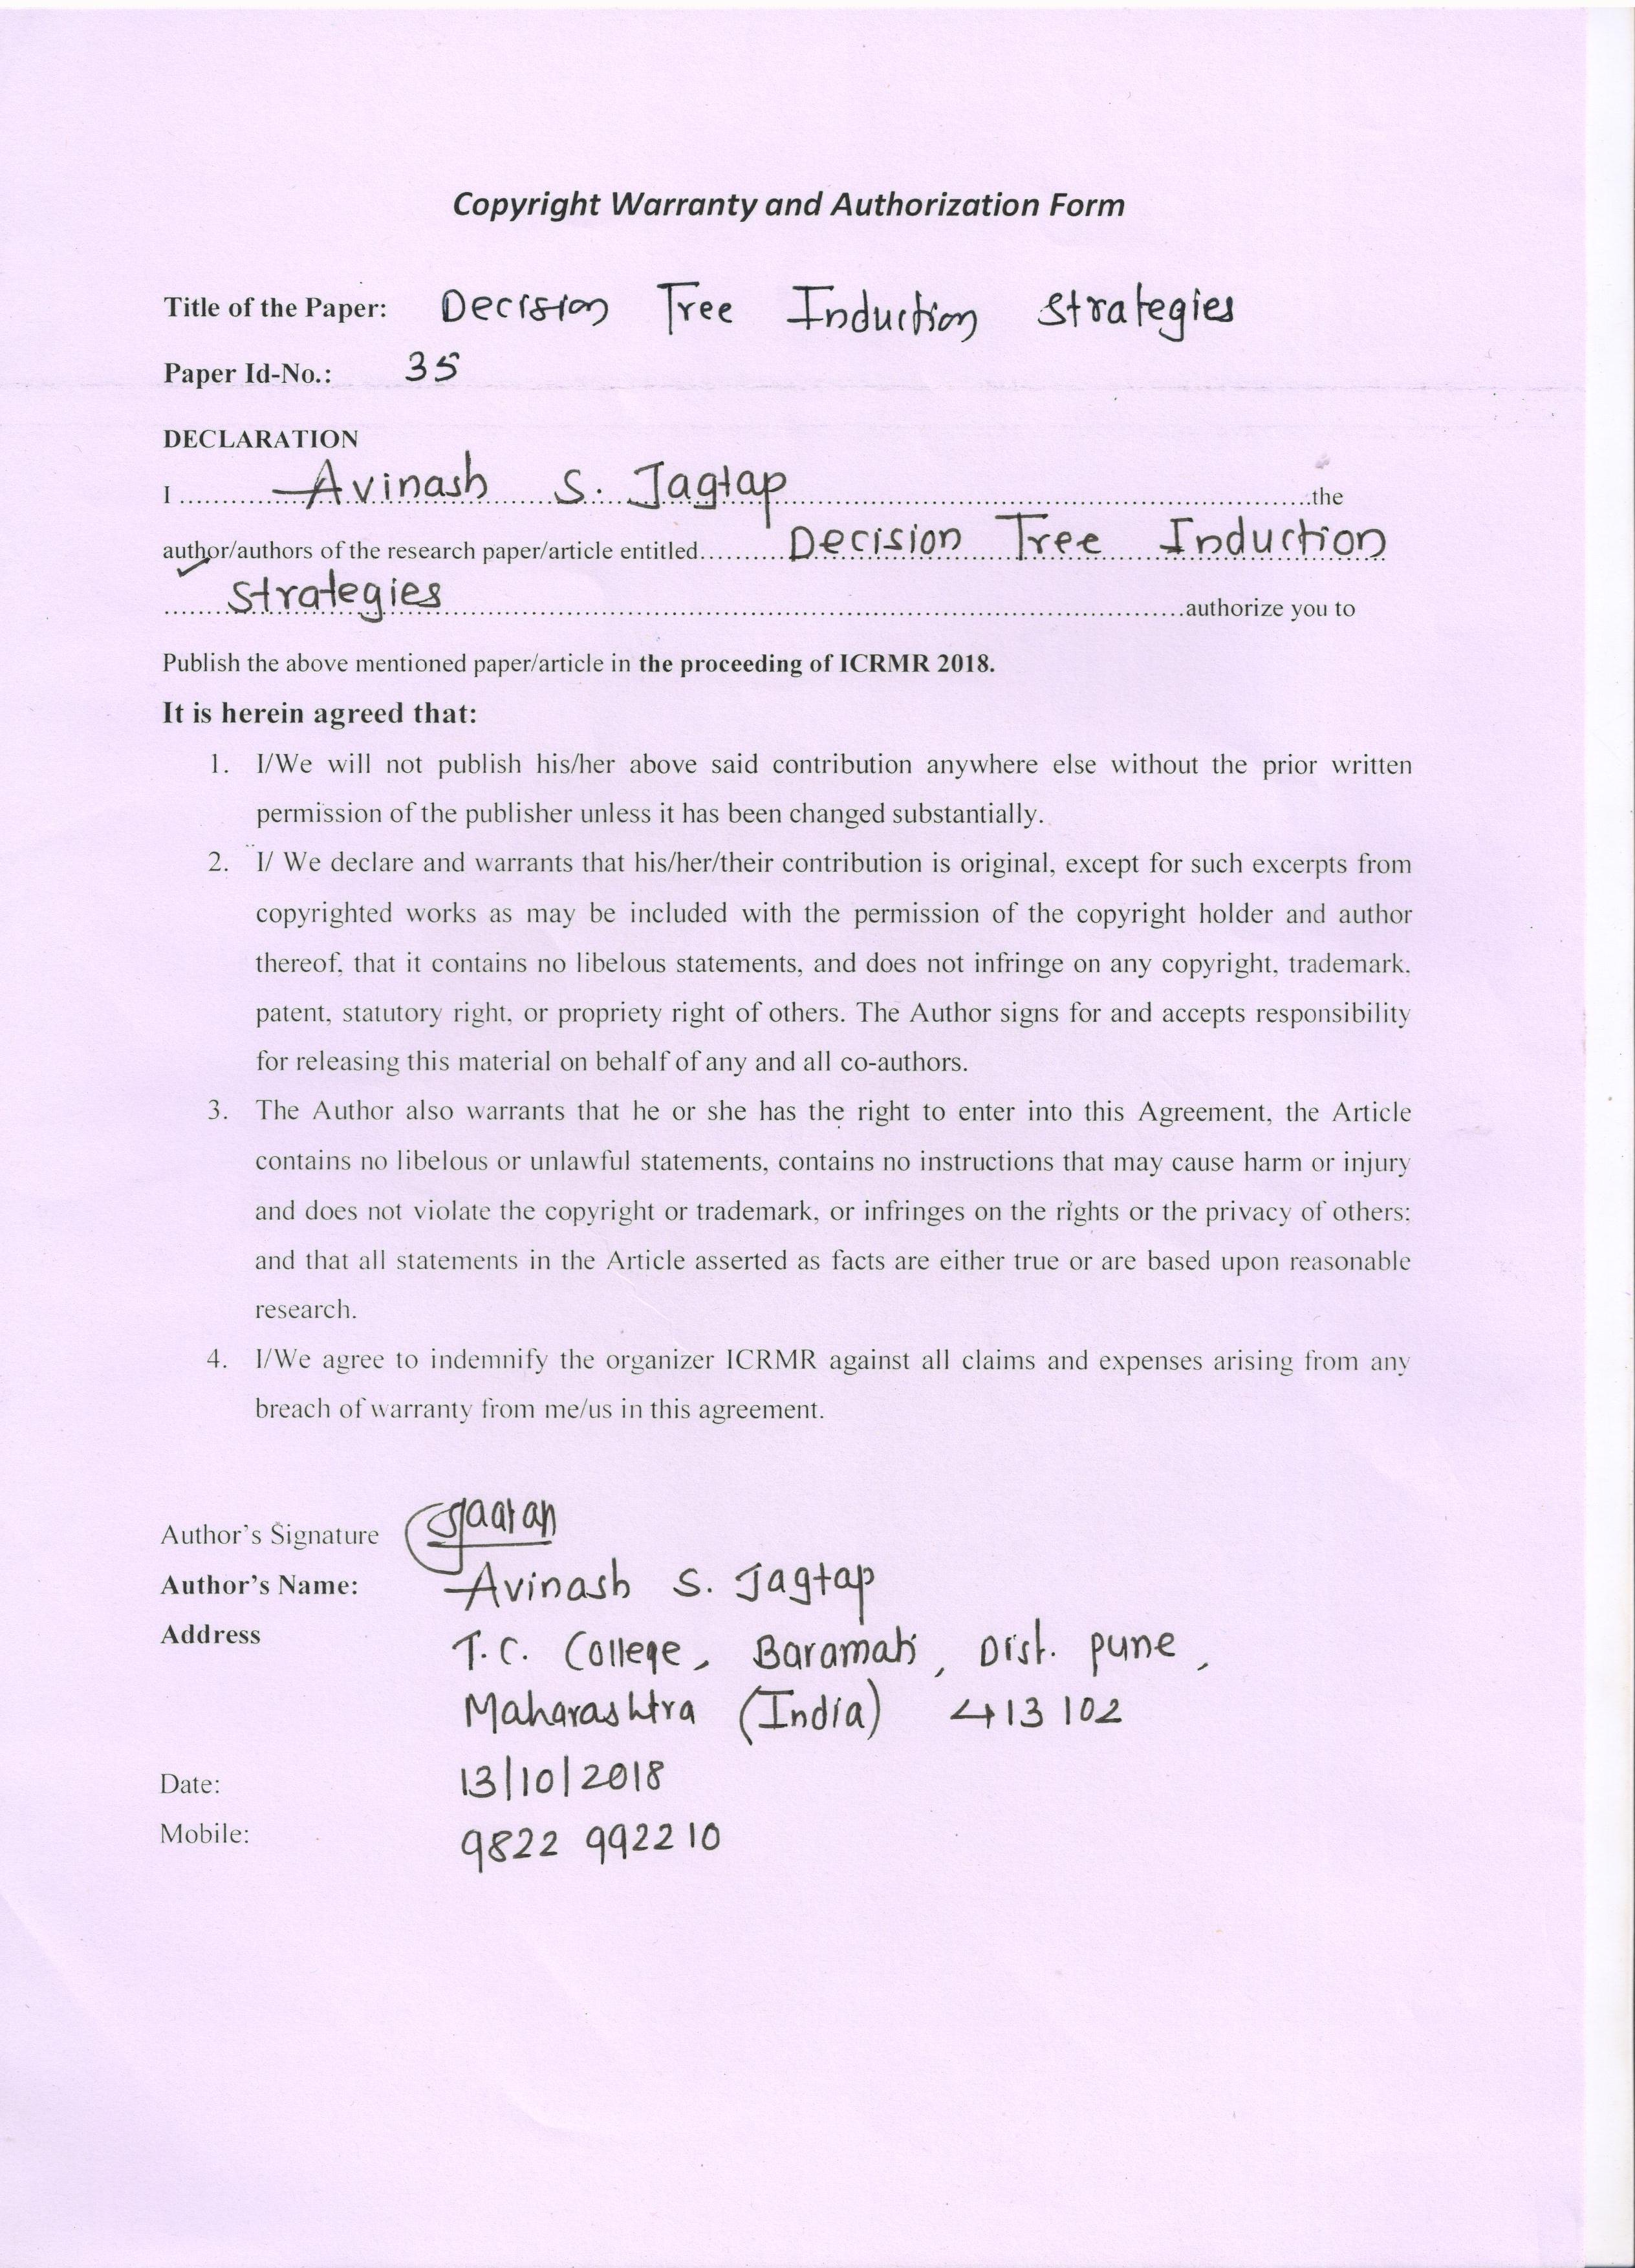 Copyright Warranty and Authorization Form
Title of the Paper: Decision Tree Induction Strategies
Paper Id-No.: 35
DECLARATION
I ............Avinash S. Jagtap............the
author/authors of the research paper/article entitled..........Decision Tree Induction
.......Strategies............authorize you to
Publish the above mentioned paper/article in the proceeding of ICRMR 2018.
It is herein agreed that:
1. I/We will not publish his/her above said contribution anywhere else without the prior written
permission of the publisher unless it has been changed substantially.
2. I/ We declare and warrants that his/her/their contribution is original, except for such excerpts from
copyrighted works as may be included with the permission of the copyright holder and author
thereof, that it contains no libelous statements, and does not infringe on any copyright, trademark,
patent, statutory right, or propriety right of others. The Author signs for and accepts responsibility
for releasing this material on behalf of any and all co-authors.
3. The Author also warrants that he or she has the right to enter into this Agreement, the Article
contains no libelous or unlawful statements, contains no instructions that may cause harm or injury
and does not violate the copyright or trademark, or infringes on the rights or the privacy of others;
and that all statements in the Article asserted as facts are either true or are based upon reasonable
research.
4. I/We agree to indemnify the organizer ICRMR against all claims and expenses arising from any
breach of warranty from me/us in this agreement.
Author's Signature
Author's Name: Avinash S. Jagtap
Address T.C. College, Baramati, Dist. Pune,
Maharashtra (India) 413 102
Date: 13/10/2018
Mobile: 9822 992210